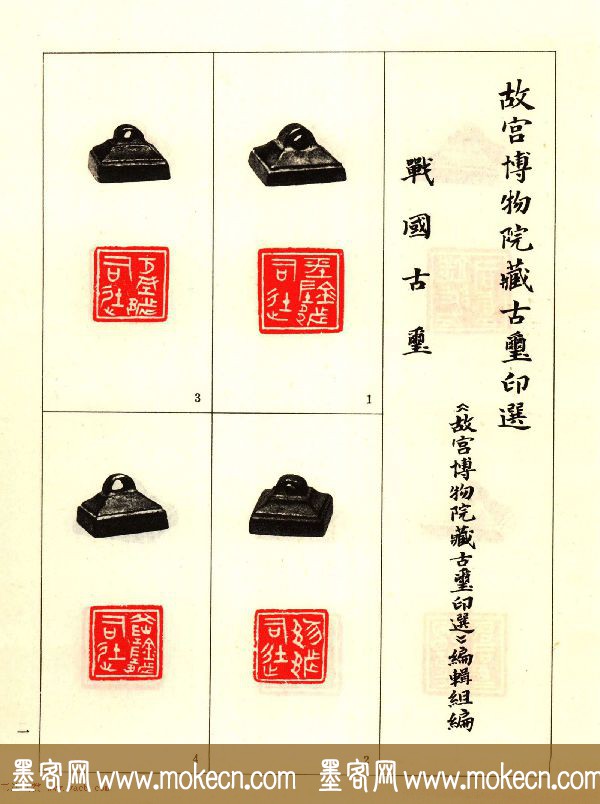 故宮博物院藏古璽印選
戰國古璽
《故宮博物院藏古璽印選》編輯組編
1
2
3
4
一
墨客网 www.mokecn.com 墨客网 www.mokecn.com